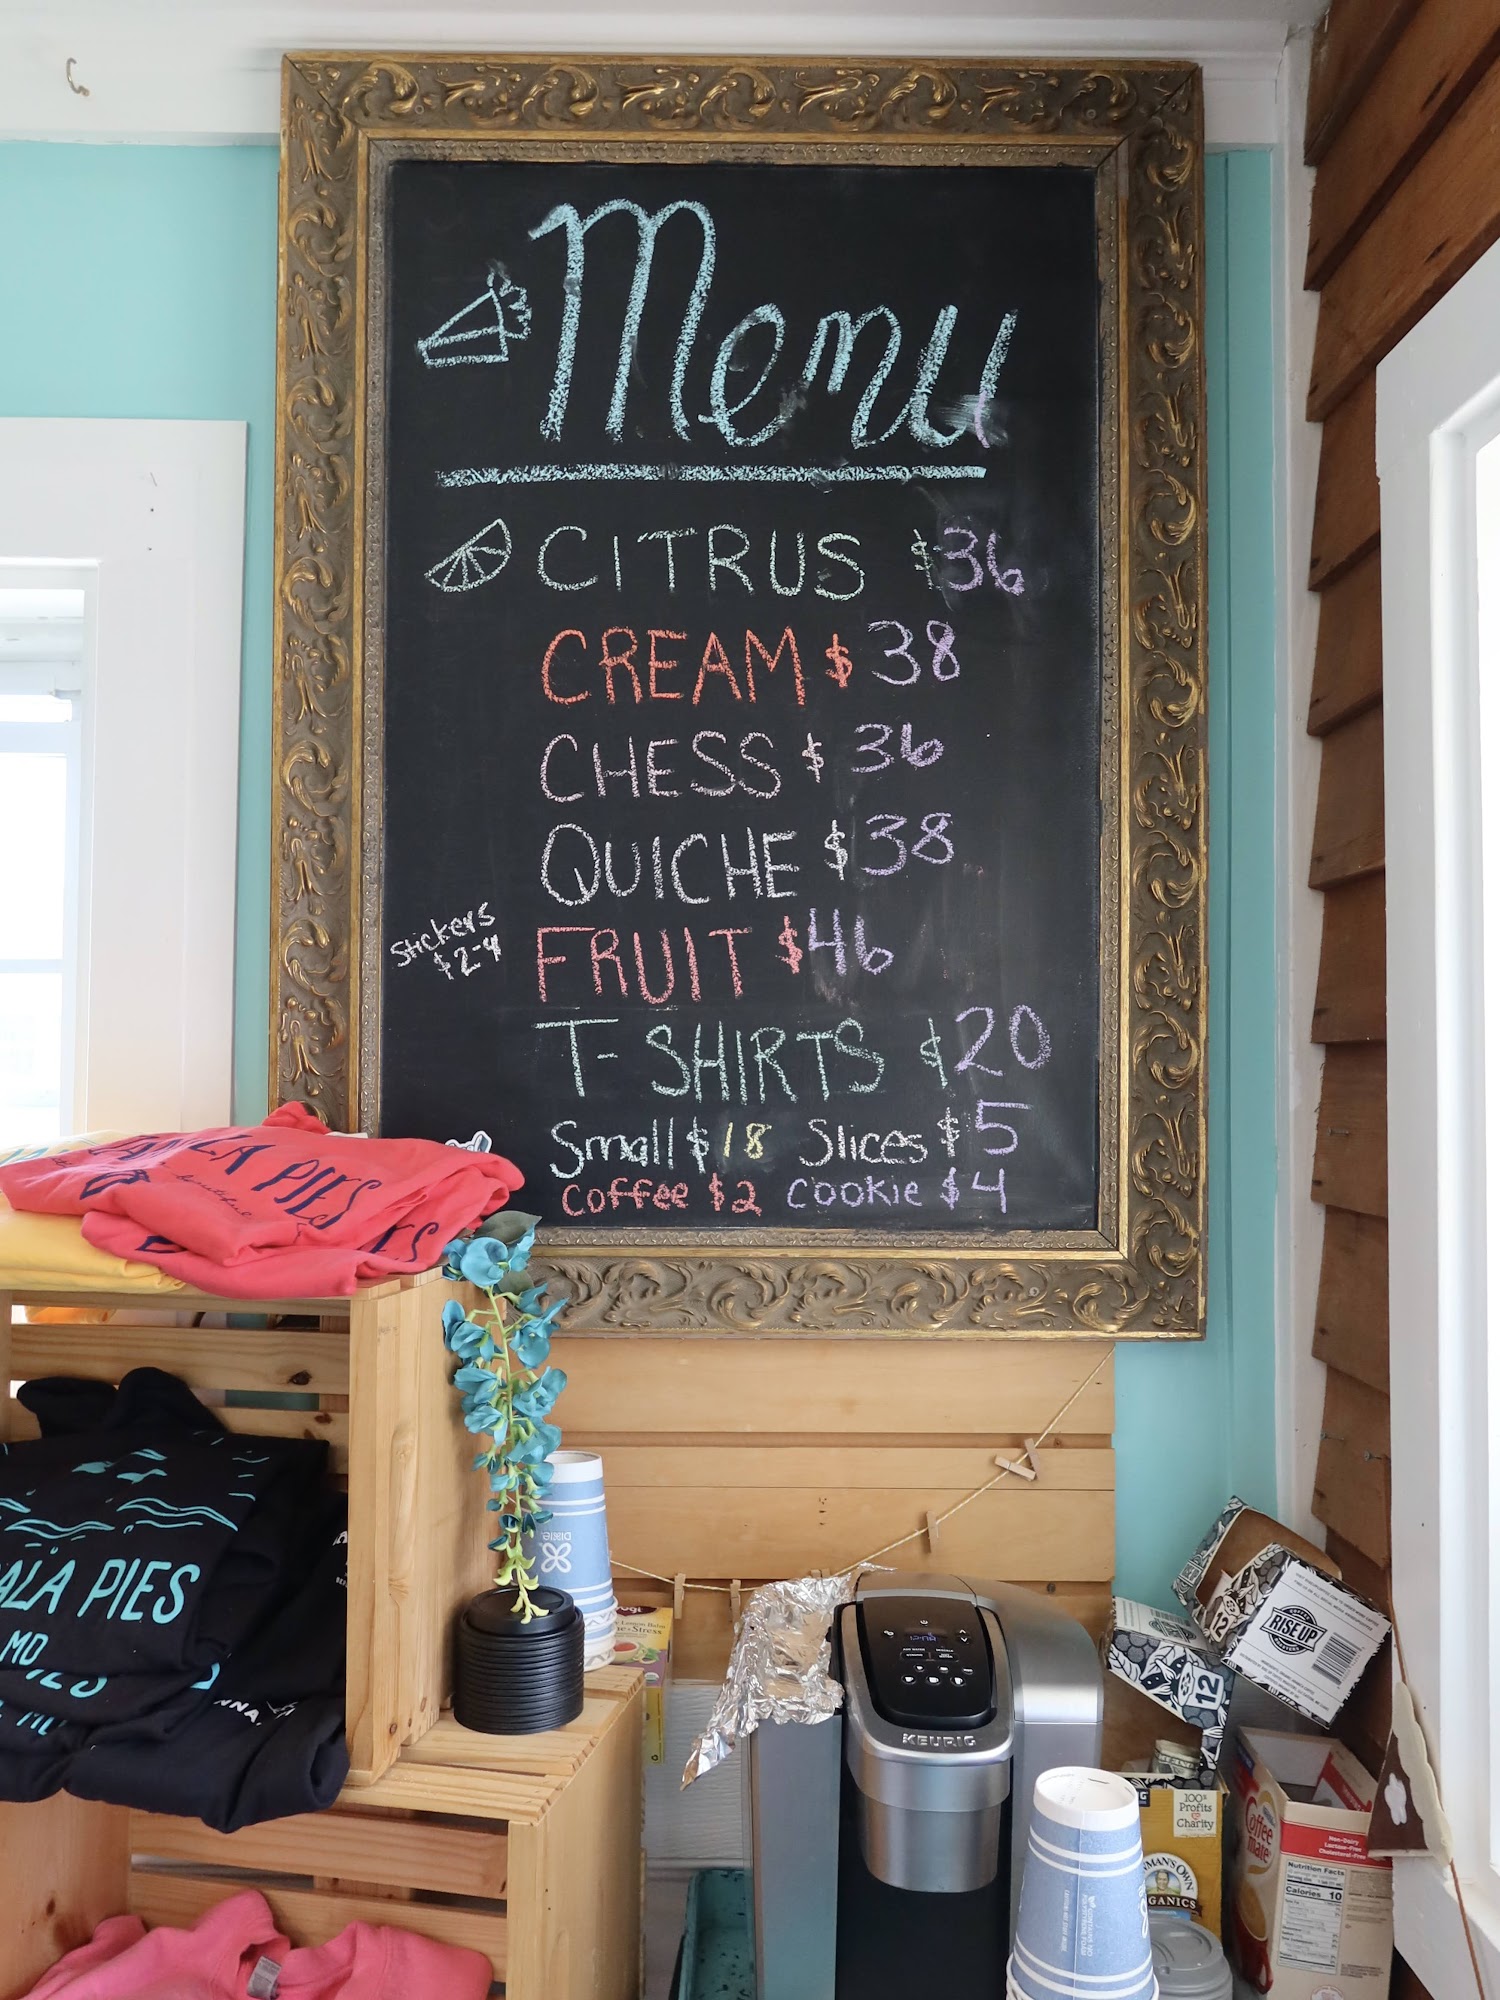 Menu
CITRUS $36
CREAM $38
CHESS $36
QUICHE $38
Stickers
$2-4
FRUIT $46
T-SHIRTS $20
Small $18 Slices $5
Coffee $2 Cookie $4
LA PIES
ALA PIES
MD
Dixie
Stress
KEURIG
RISE UP
12
12
100%
Profits
to
Charity
MAN'S OWN
ORGANICS
Coffee
mate
Non-Dairy
Lactose-Free
Cholesterol-Free
Nutrition Facts
Calories 10